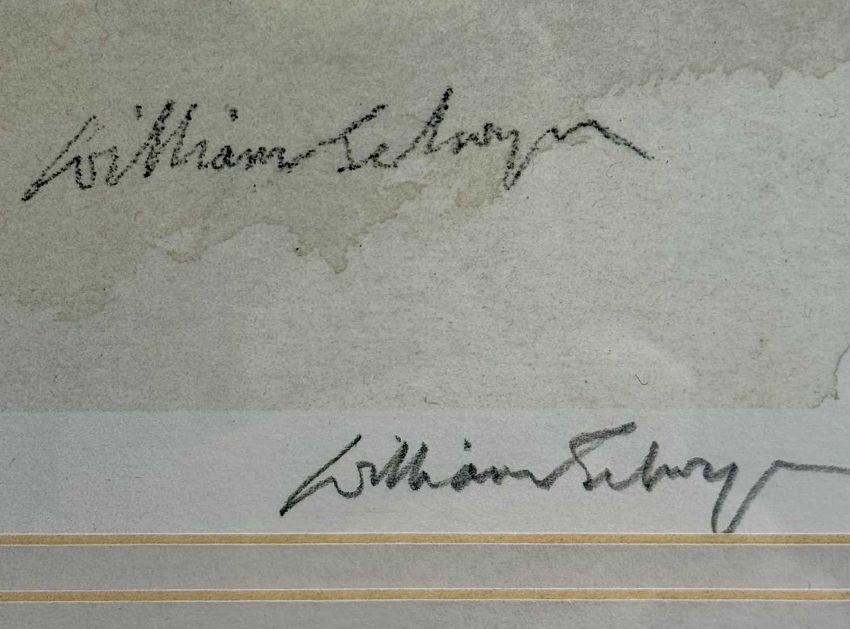 William Selwyn
William Selwyn